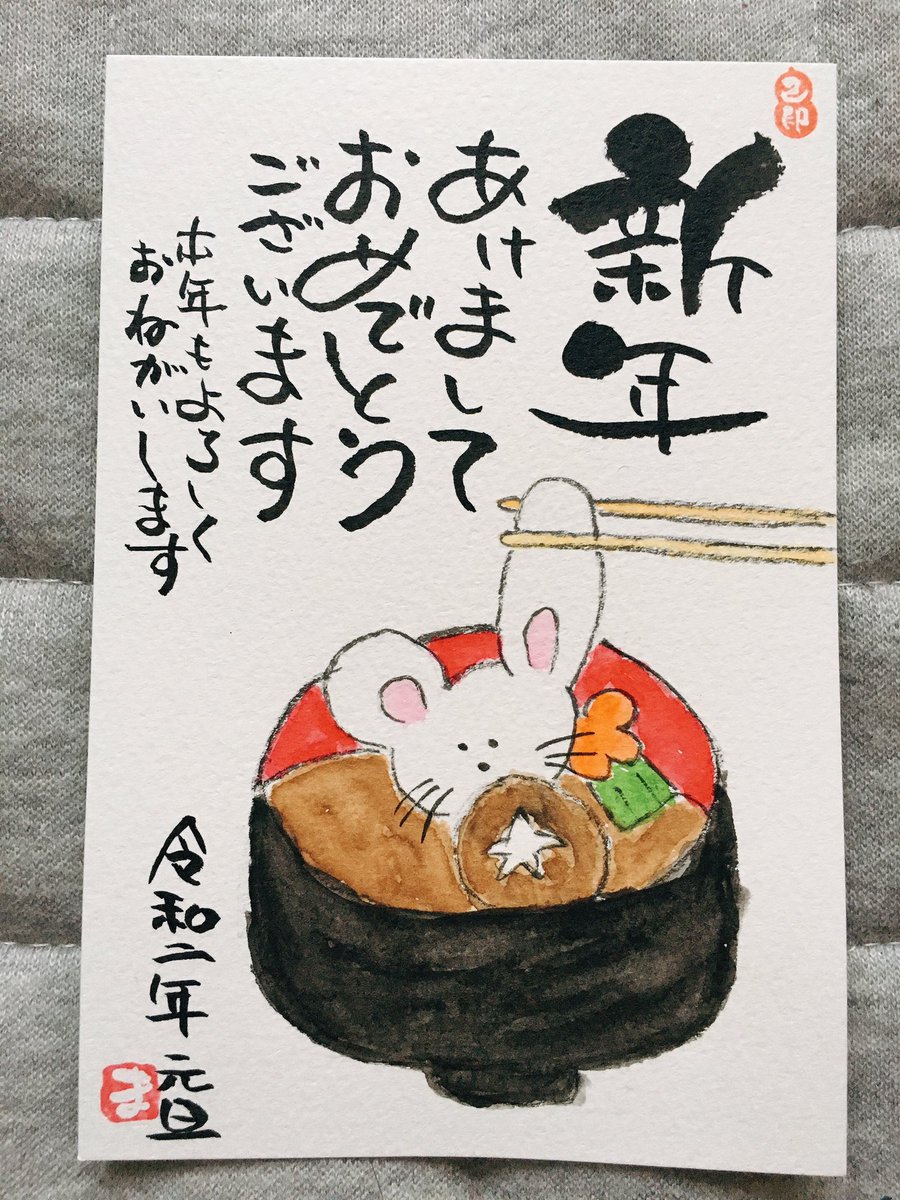 新年
あけまして
おめでとう
ございます
本年もよろしく
おねがいします
令和二年 元旦
ま